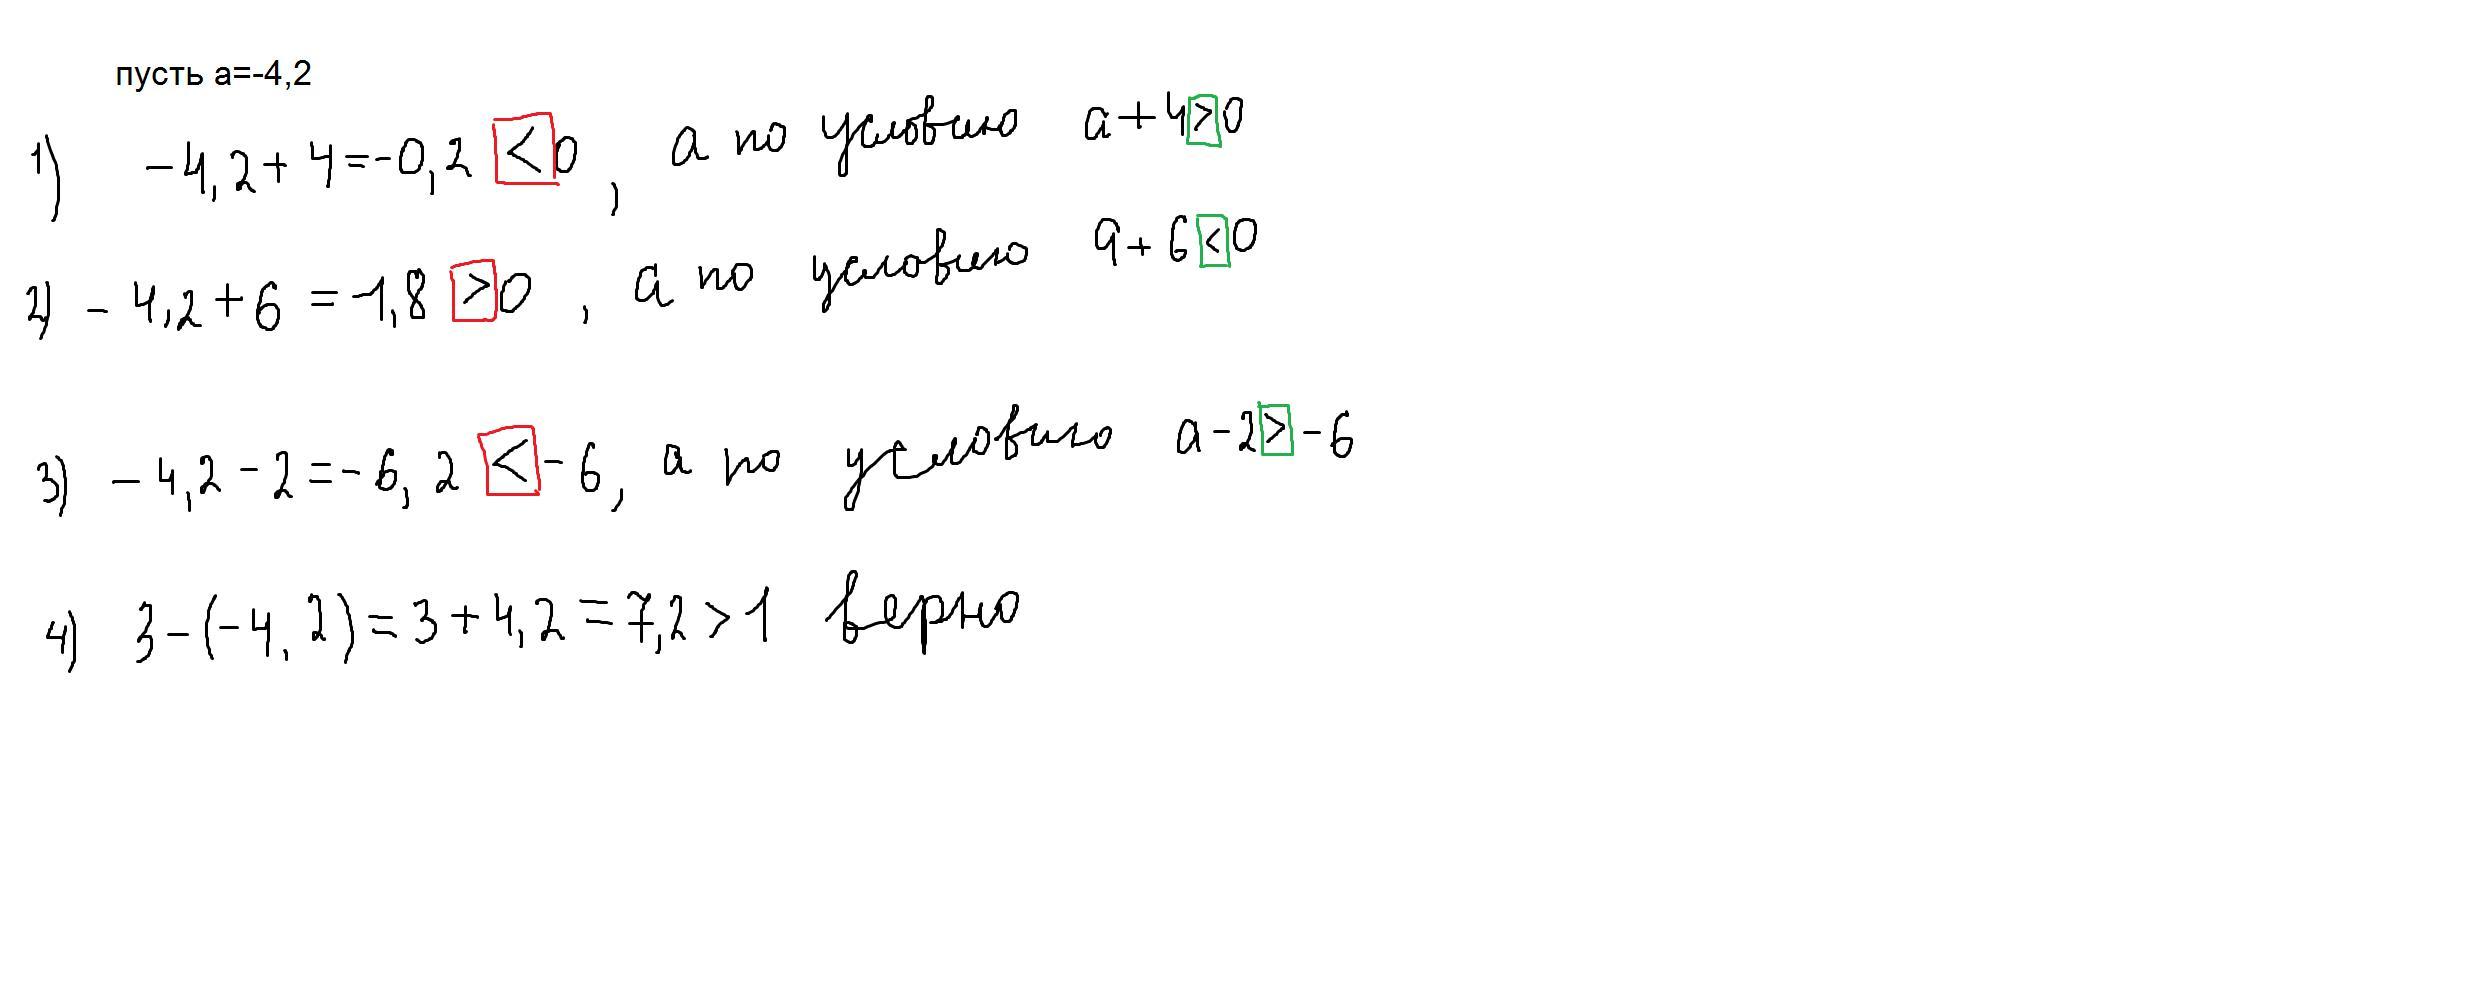 пусть а=-4,2
1) -4,2+4=-0,2 <0, а по условию a+4>0
2) -4,2+6=-1,8 >0, а по условию a+6<0
3) -4,2-2=-6,2 <-6, а по условию a-2>-6
4) 3-(-4,2)=3+4,2=7,2>1 верно